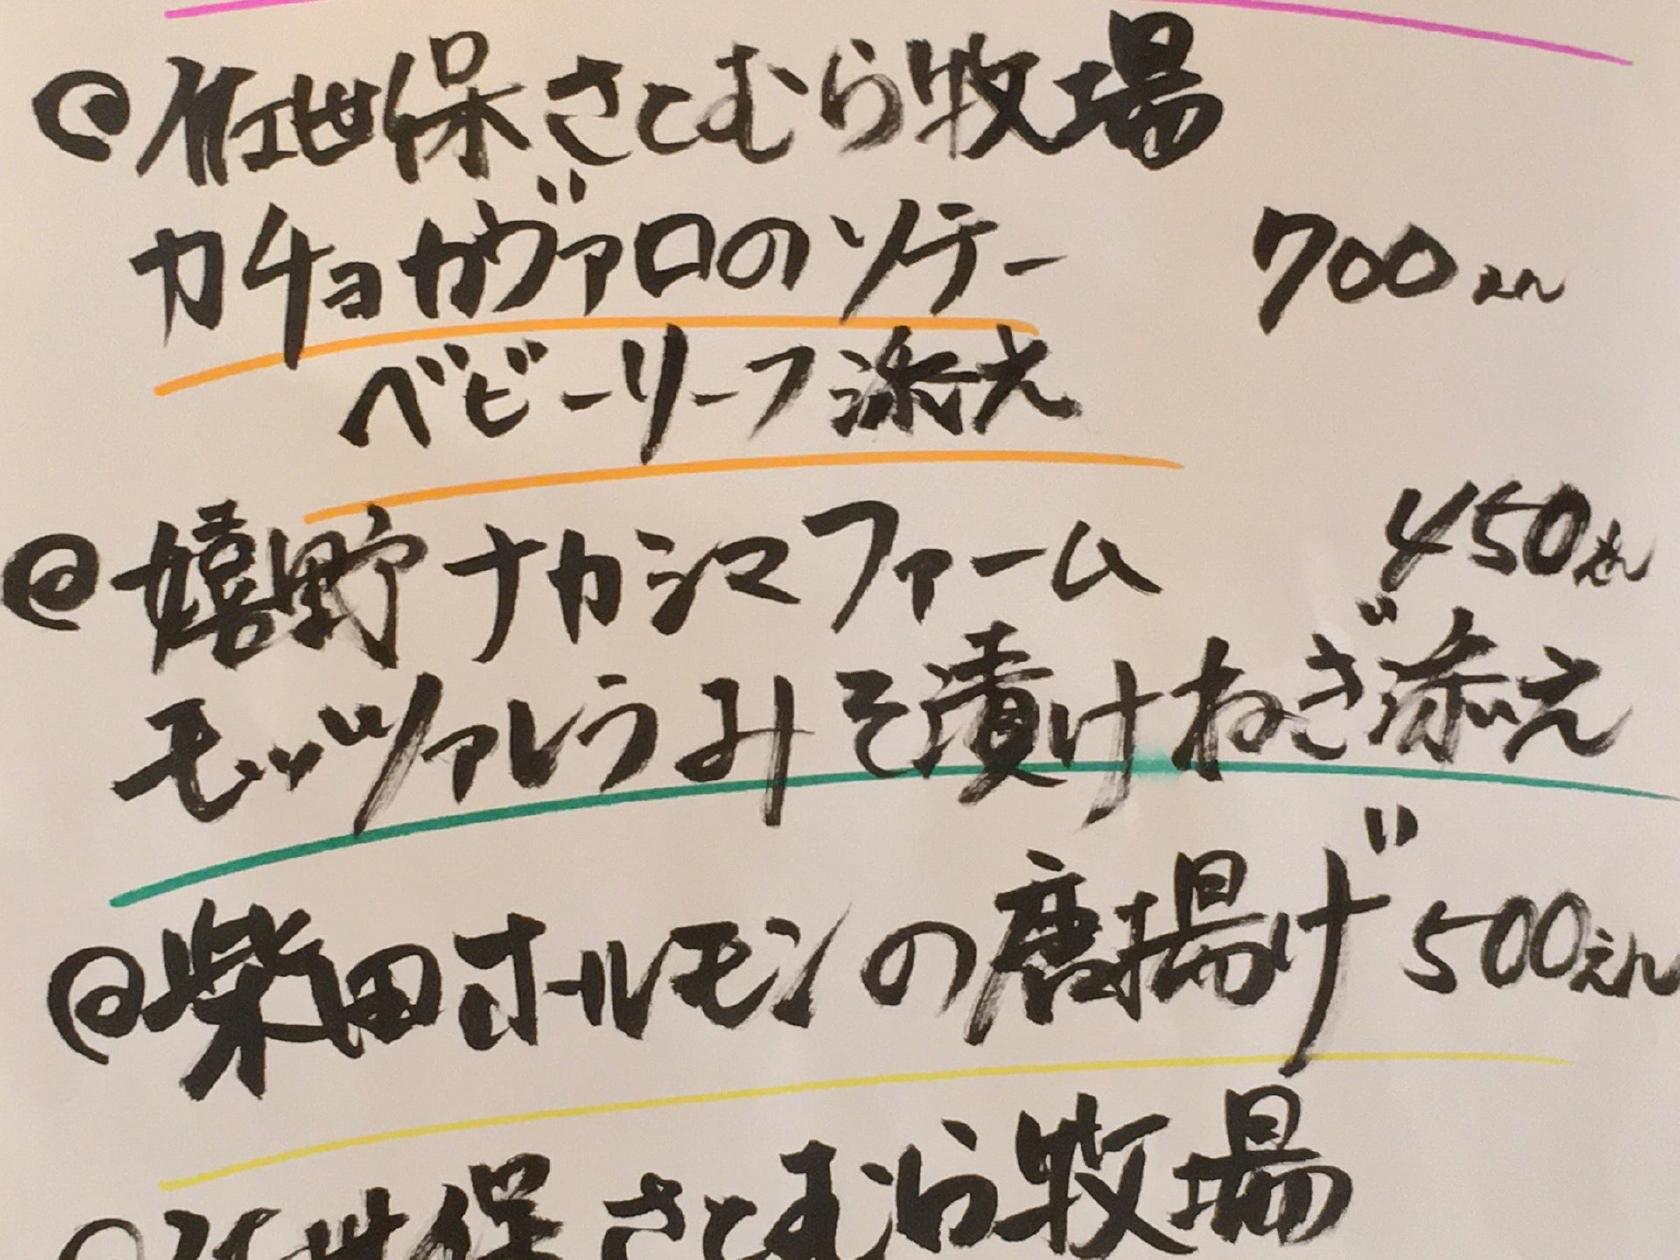 @佐世保さとむら牧場
カチョカヴァロのソテー 700えん
ベビーリーフ添え
@嬉野ナカシマファーム 450えん
モッツァレラみそ漬けねぎ添え
@柴田ホールモンの唐揚げ 500えん
@佐世保さとむら牧場